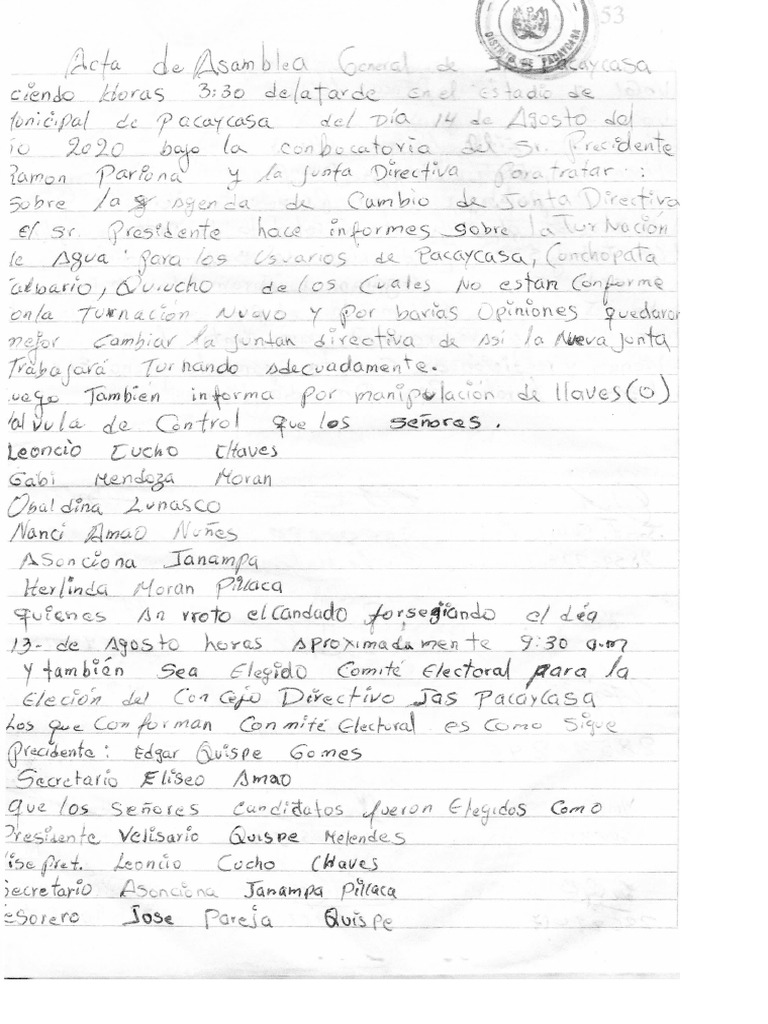 53
DISTRITO PACAYCASA
Acta de Asamblea General de JAS Pacaycasa
ciendo Horas 3:30 delatarde en el Estadio de
Municipal de Pacaycasa del Día 14 de Agosto del
2020 bajo la conbocatoria del Sr. Precidente
Ramon Pariona y la junta Directiva para tratar :
Sobre la Agenda de Cambio de Junta Directiva
el Sr. Presidente hace informes sobre la Turnación
de Agua para los Usuarios de Pacaycasa, Conchopata
Calbario, Quiucho de los Cuales No estan Conforme
conla Turnación Nuevo y por barias Opiniones quedaron
mejor Cambiar la juntan directiva de Asi la Nueva junta
Trabajará Turnando Adecuadamente.
Luego Tambien informa por manipulación de llaves (o)
Valvula de Control que los señores.
Leoncio Cucho Chaves
Gabi Mendoza Moran
Obaldina Lunasco
Nanci Amao Nuñes
Asonciona Janampa
Herlinda Moran Pillaca
quienes An rroto el Candado forsegiando el día
13- de Agosto horas Aproximadamente 9:30 a.m
y también Sea Elegido Comité Electoral para la
Eleción del Concejo Directivo Jas Pacaycasa
Los que Conforman Conmité Electural es Como Sigue
Precidente: Edgar Quispe Gomes
Secretario Eliseo Amao
que los Señores Candidatos fueron Elegidos Como
Presidente Velisario Quispe Melendes
Vise Pret. Leoncio Cucho Chaves
Secretario Asonciona Janampa Pillaca
Tesorero Jose Pareja Quispe